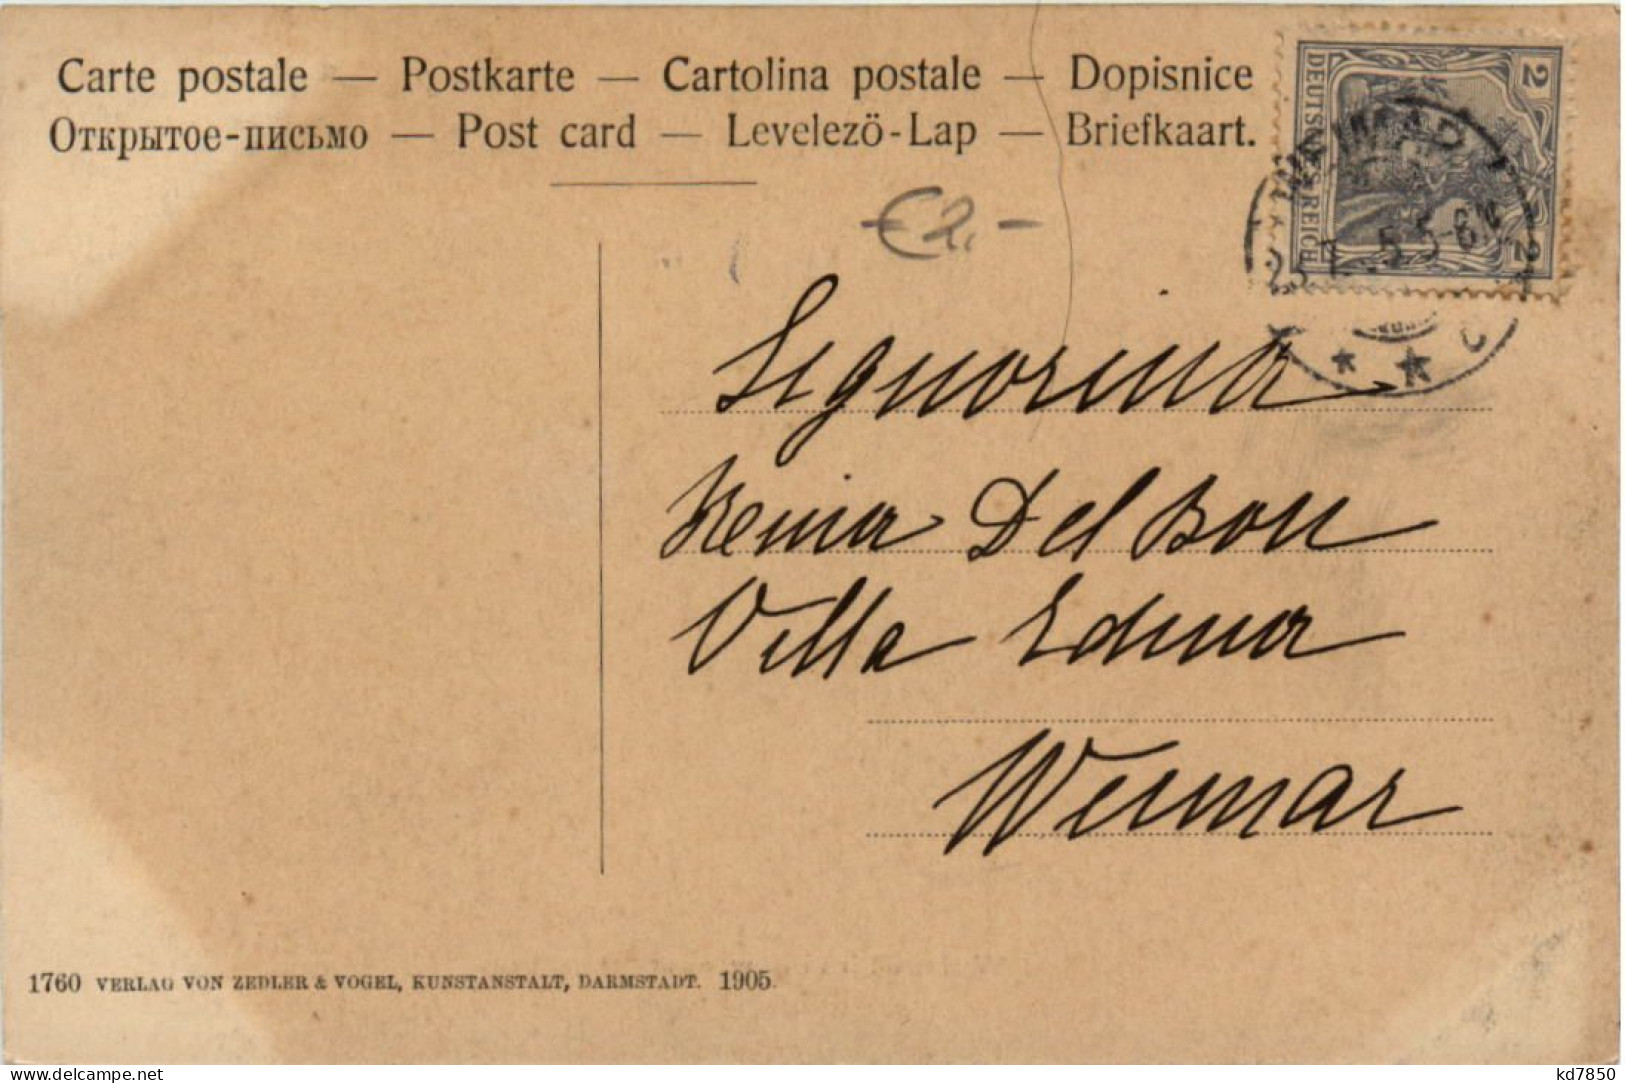 Carte postale — Postkarte — Cartolina postale — Dopisnice
Открытое-письмо — Post card — Levelező-Lap — Briefkaart.
€2,-
2 DEUTSCHES REICH 2
WEIMAR
5-6N
Signorina
Xenia Del Bon
Villa Edma
Weimar
1760 VERLAG VON ZEDLER & VOGEL, KUNSTANSTALT, DARMSTADT. 1905.
www.delcampe.net
kd7850